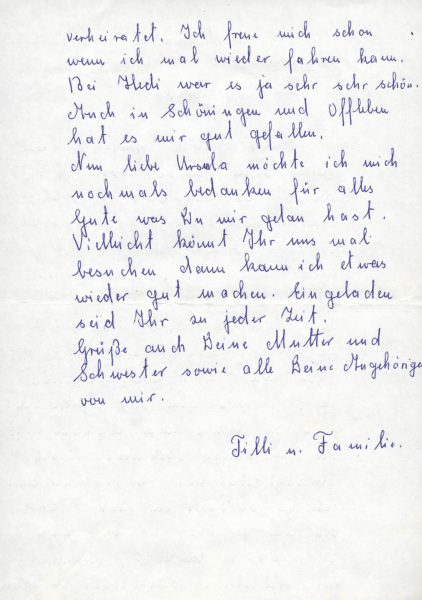 verheiratet. Ich freue mich schon
wenn ich mal wieder fahren kann.
Bei Hedi war es ja sehr sehr schön.
Auch in Schöningen und Offleben
hat es mir gut gefallen.
Nun liebe Ursula möchte ich mich
nochmals bedanken für alles
Gute was Du mir getan hast.
Vielleicht könnt Ihr uns mal
besuchen dann kann ich etwas
wieder gut machen. Eingeladen
seid Ihr zu jeder Zeit.
Grüße auch Deine Mutter und
Schwester sowie alle Deine Angehörige
von mir.
Tilli u. Familie.